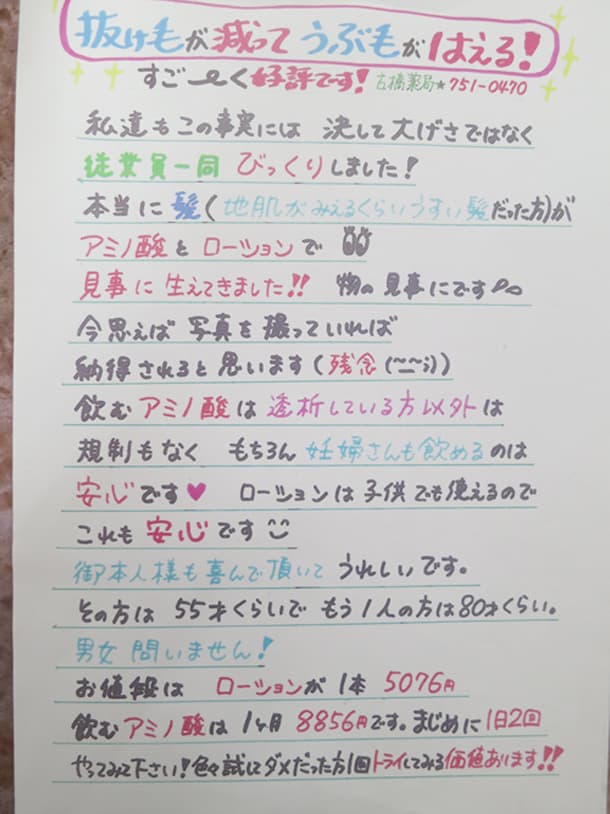 抜け毛が減って うぶ毛がはえる!
すご〜く好評です! 古橋薬局★751-0470
私達もこの事実には 決して大げさではなく
従業員一同 びっくりしました!
本当に髪(地肌がみえるくらいうすい髪だった方)が
アミノ酸とローションで
見事に生えてきました!! 物の見事にです
今思えば 写真を撮っていれば
納得されると思います(残念(~_~;))
飲むアミノ酸は透析している方以外は
規制もなく もちろん妊婦さんも飲めるのは
安心です♥ ローションは子供でも使えるので
これも安心です
御本人様も喜んで頂いて うれしいです。
その方は 55才くらいで もう1人の方は80才くらい。
男女問いません!
お値段は ローションが1本 5076円
飲むアミノ酸は1ヶ月 8856円です。まじめに1日2回
やってみて下さい!色々試してダメだった方1回トライしてみる価値あります!!